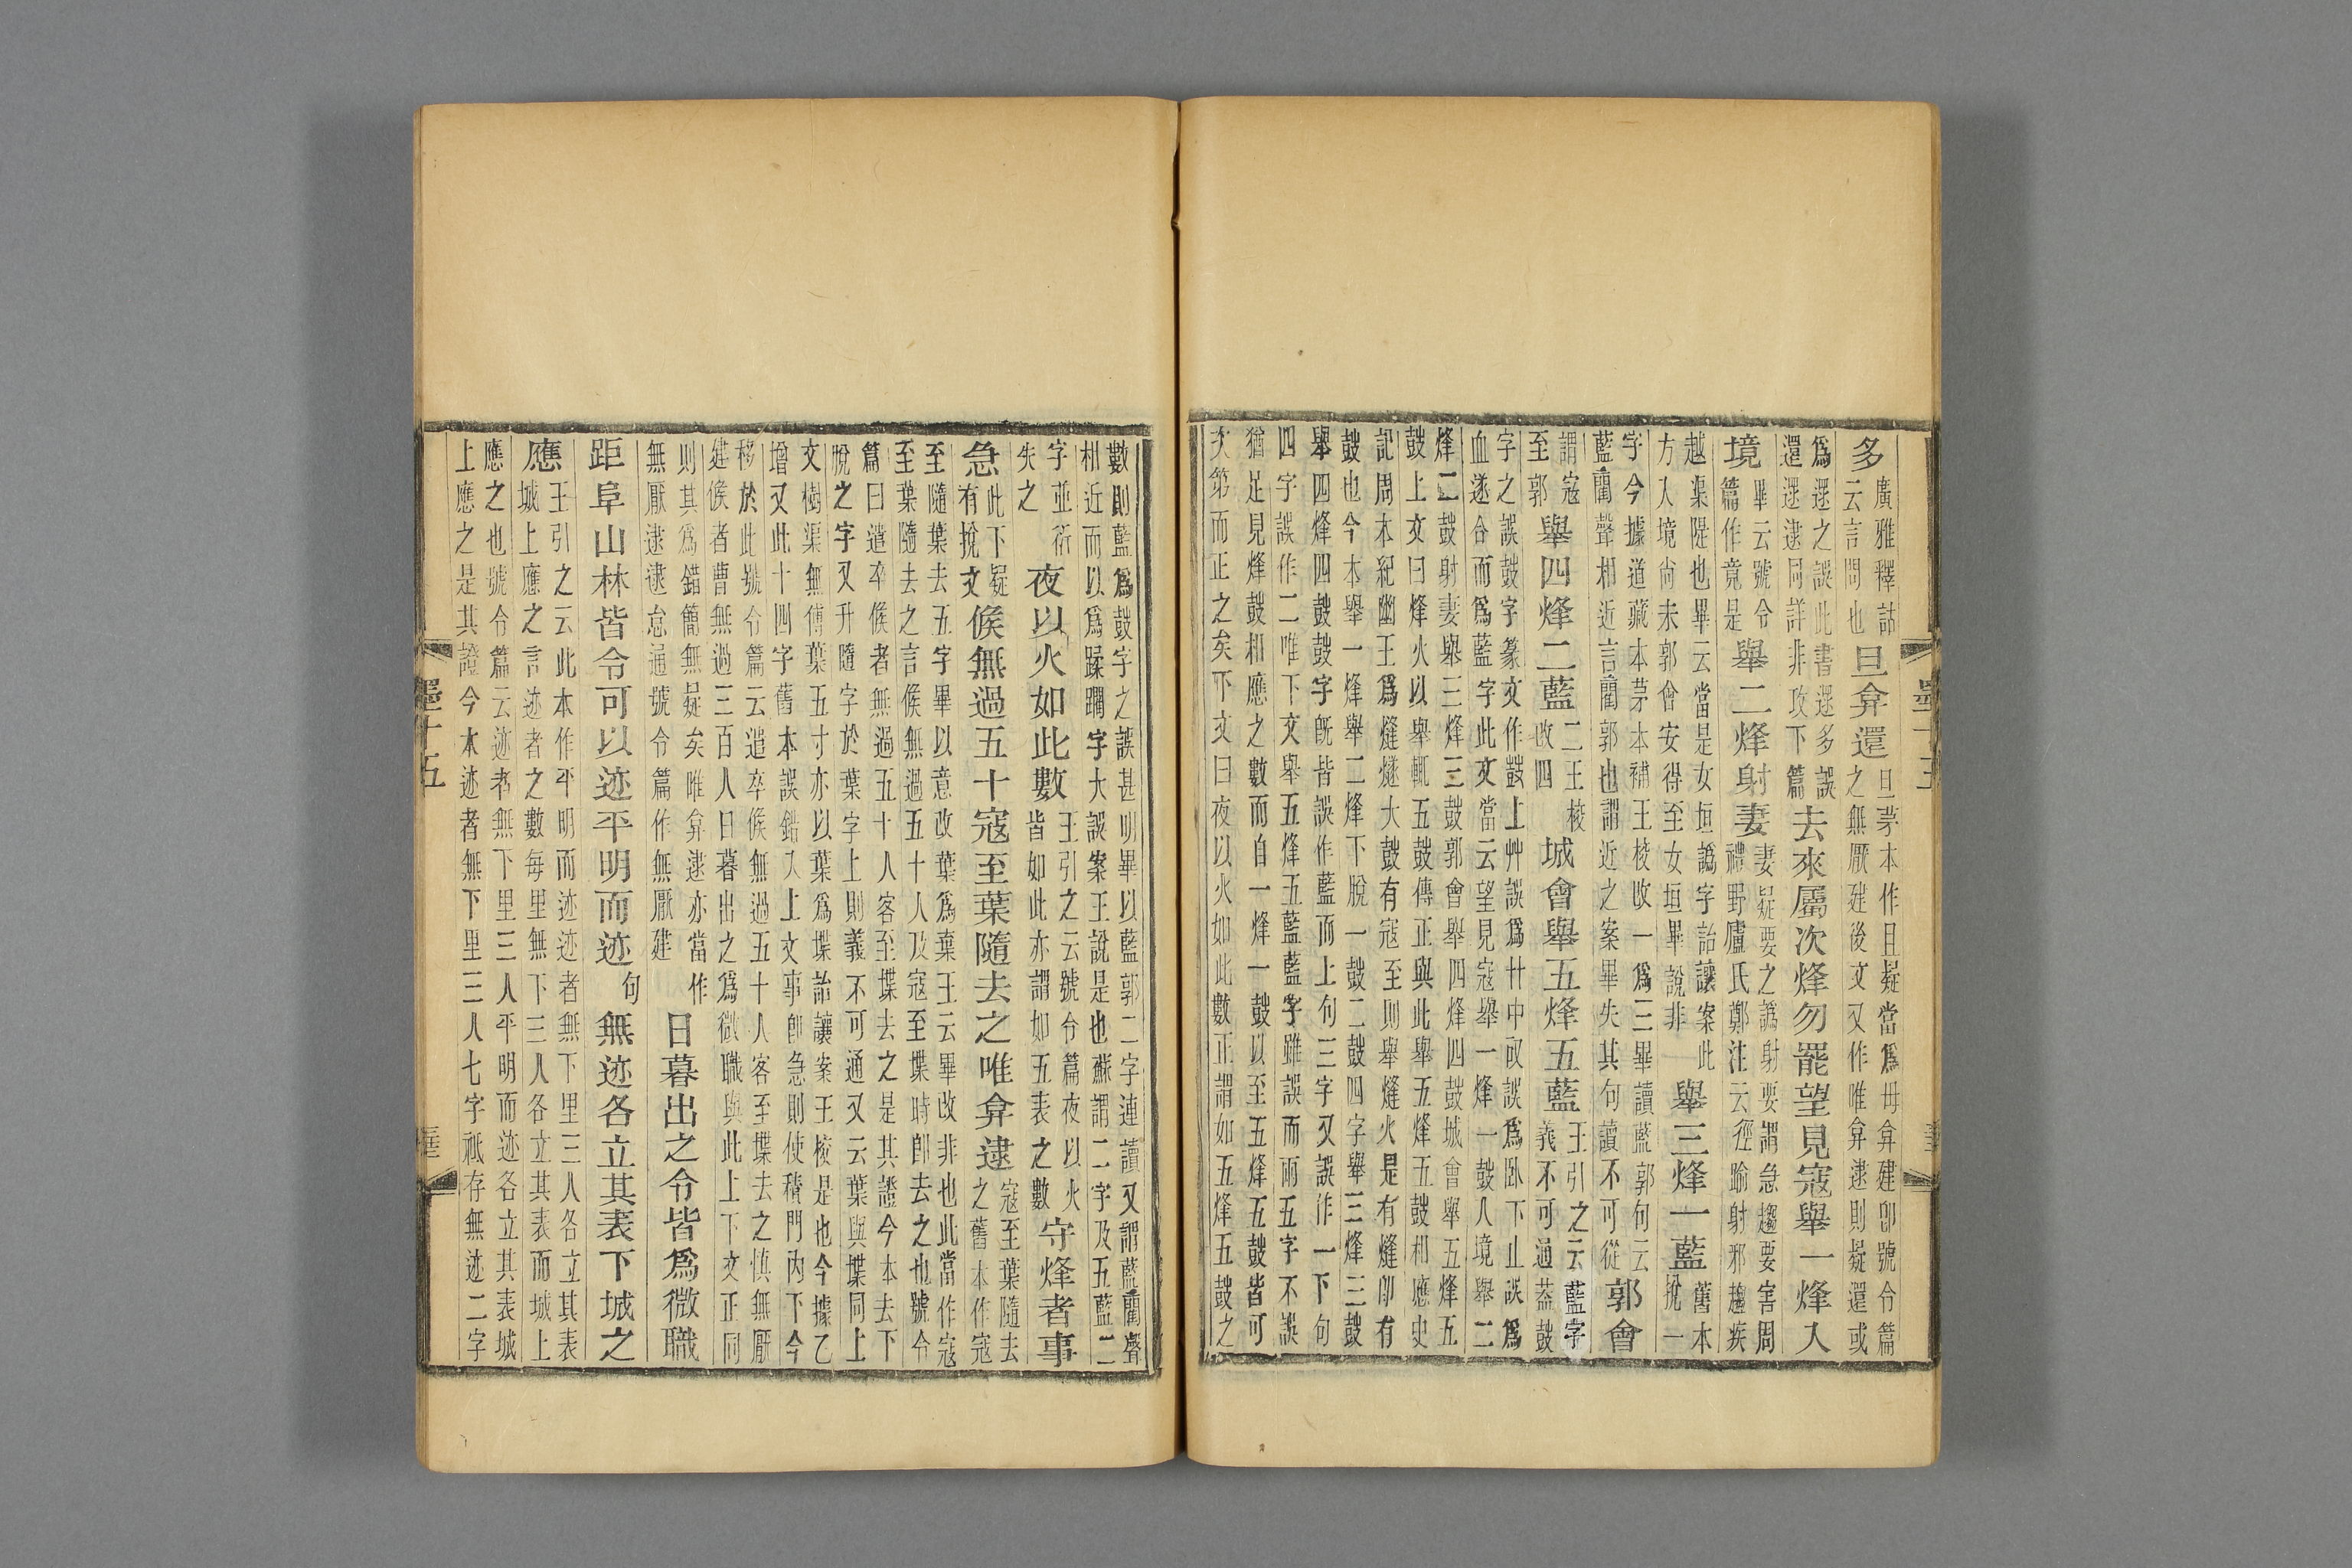 多
廣雅釋詁
云言問也
旦弇還
旦茅本作且疑當爲毋弇建卽號令篇
之無厭建後文又作唯弇逮則疑還或
爲遝之誤此書遝多誤
還遝逮同詳非攻下篇
去來屬次烽勿罷望見寇舉一烽入
境
畢云號令
篇作竟是
舉二烽射妻
妻疑要之譌射要謂急趨要害周
禮野廬氏鄭注云徑踰射邪趨疾
越渠隄也畢云當是女垣譌字詒讓案此
方入境尙未郭會安得至女垣畢說非
舉三烽一藍
舊本
挩一
字今據道藏本茅本補王校改一爲三畢讀藍郭句云
藍藺聲相近言藺郭也謂近之案畢失其句讀不可從
郭會
謂寇
至郭
舉四烽二藍
二王校
改四
城會舉五烽五藍
王引之云藍字
義不可通葢鼓
字之誤鼓字篆文作鼓上艸誤爲廿中㕢誤爲臥下止誤爲
血遂合而爲藍字此文當云望見寇舉一烽一鼓入境舉二
烽二鼓射妻舉三烽三鼓郭會舉四烽四鼓城會舉五烽五
鼓上文曰烽火以舉輒五鼓傳正與此舉五烽五鼓相應史
記周本紀幽王爲㷭燧大鼓有寇至則舉㷭火是有㷭卽有
鼓也今本舉一烽舉二烽下脫一鼓二鼓四字舉三烽三鼓
舉四烽四鼓鼓字旣皆誤作藍而上句三字又誤作一下句
四字誤作二唯下文舉五烽五藍藍字雖誤而兩五字不誤
猶足見烽鼓相應之數而自一烽一鼓以至五烽五鼓皆可
次第而正之矣下文曰夜以火如此數正謂如五烽五鼓之
數則藍爲鼓字之誤甚明畢以藍郭二字連讀又謂藍藺聲
相近而以爲蹂躙字大誤案王說是也蘇謂二字及五藍二
字並衍
失之
夜以火如此數
王引之云號令篇夜以火
皆如此亦謂如五表之數
守烽者事
急
此下疑
有挩文
候無過五十寇至葉隨去之唯弇逮
寇至葉隨去
之舊本作寇
至隨葉去五字畢以意改葉爲棄王云畢改非也此當作寇
至葉隨去之言候無過五十人及寇至堞時卽去之也號令
篇曰遣卒候者無過五十人客至堞去之是其證今本去下
脫之字又升隨字於葉字上則義不可通又云葉與堞同上
文樹渠無傅葉五寸亦以葉爲堞詒讓案王校是也今據乙
增又此十四字舊本誤錯入上文事卽急則使積門內下今
移於此號令篇云遣卒候無過五十人客至堞去之愼無厭
建候者曹無過三百人日暮出之爲微職與此上下文正同
則其爲錯簡無疑矣唯弇逮亦當作
無厭逮逮怠通號令篇作無厭建
日暮出之令皆爲微職
距阜山林皆令可以迹平明而迹
句
無迹各立其表下城之
應
王引之云此本作平明而迹迹者無下里三人各立其表
城上應之言迹者之數每里無下三人各立其表而城上
應之也號令篇云迹者無下里三人平明而迹各立其表城
上應之是其證今本迹者無下里三人七字祗存無迹二字
墨十五
墨十五